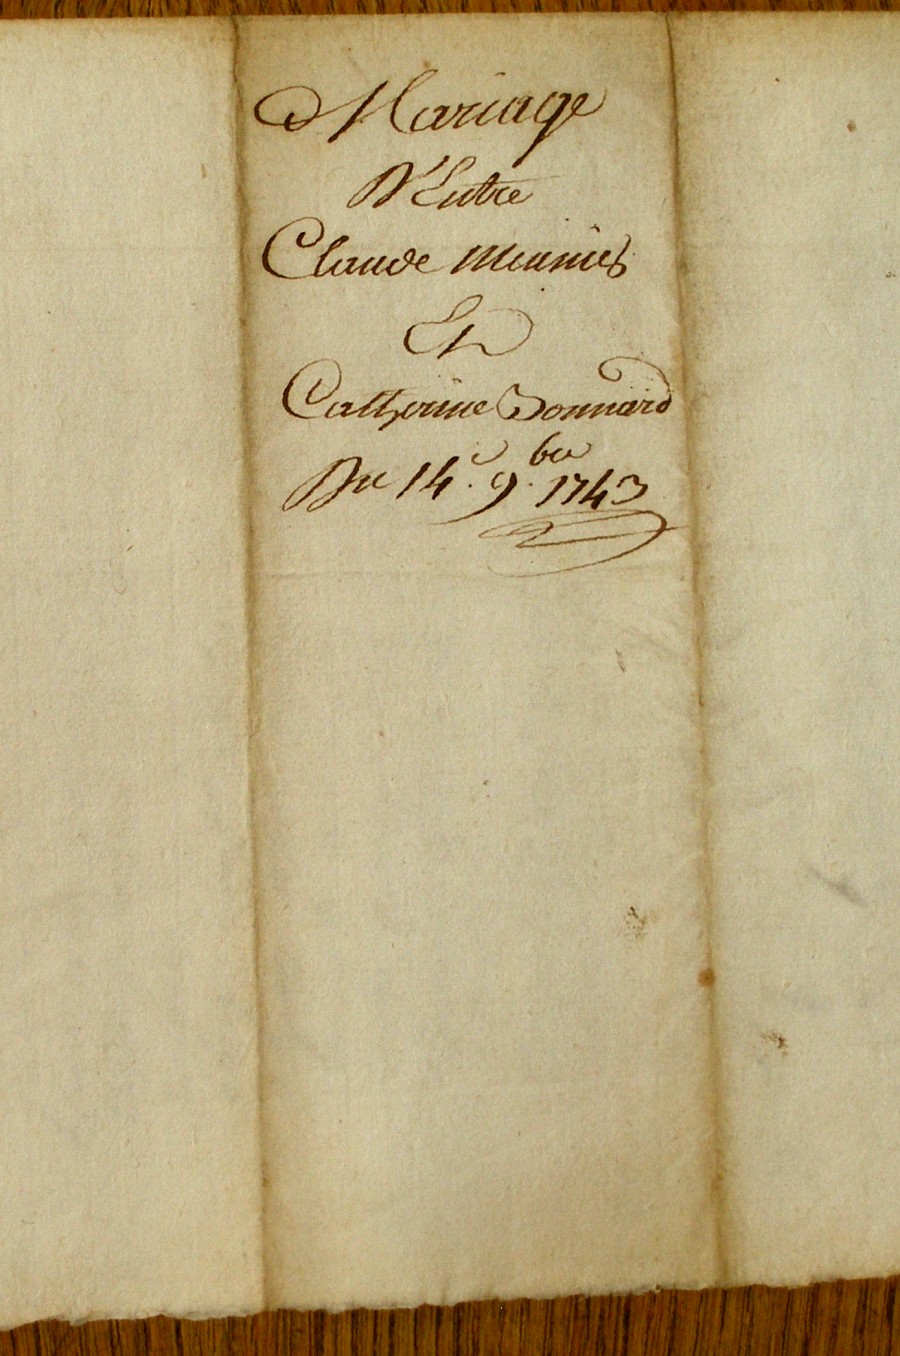 Mariage
D'Entre
Claude Meunier
Et
Catherine Bonnard
Du 14.e 9.bre 1743